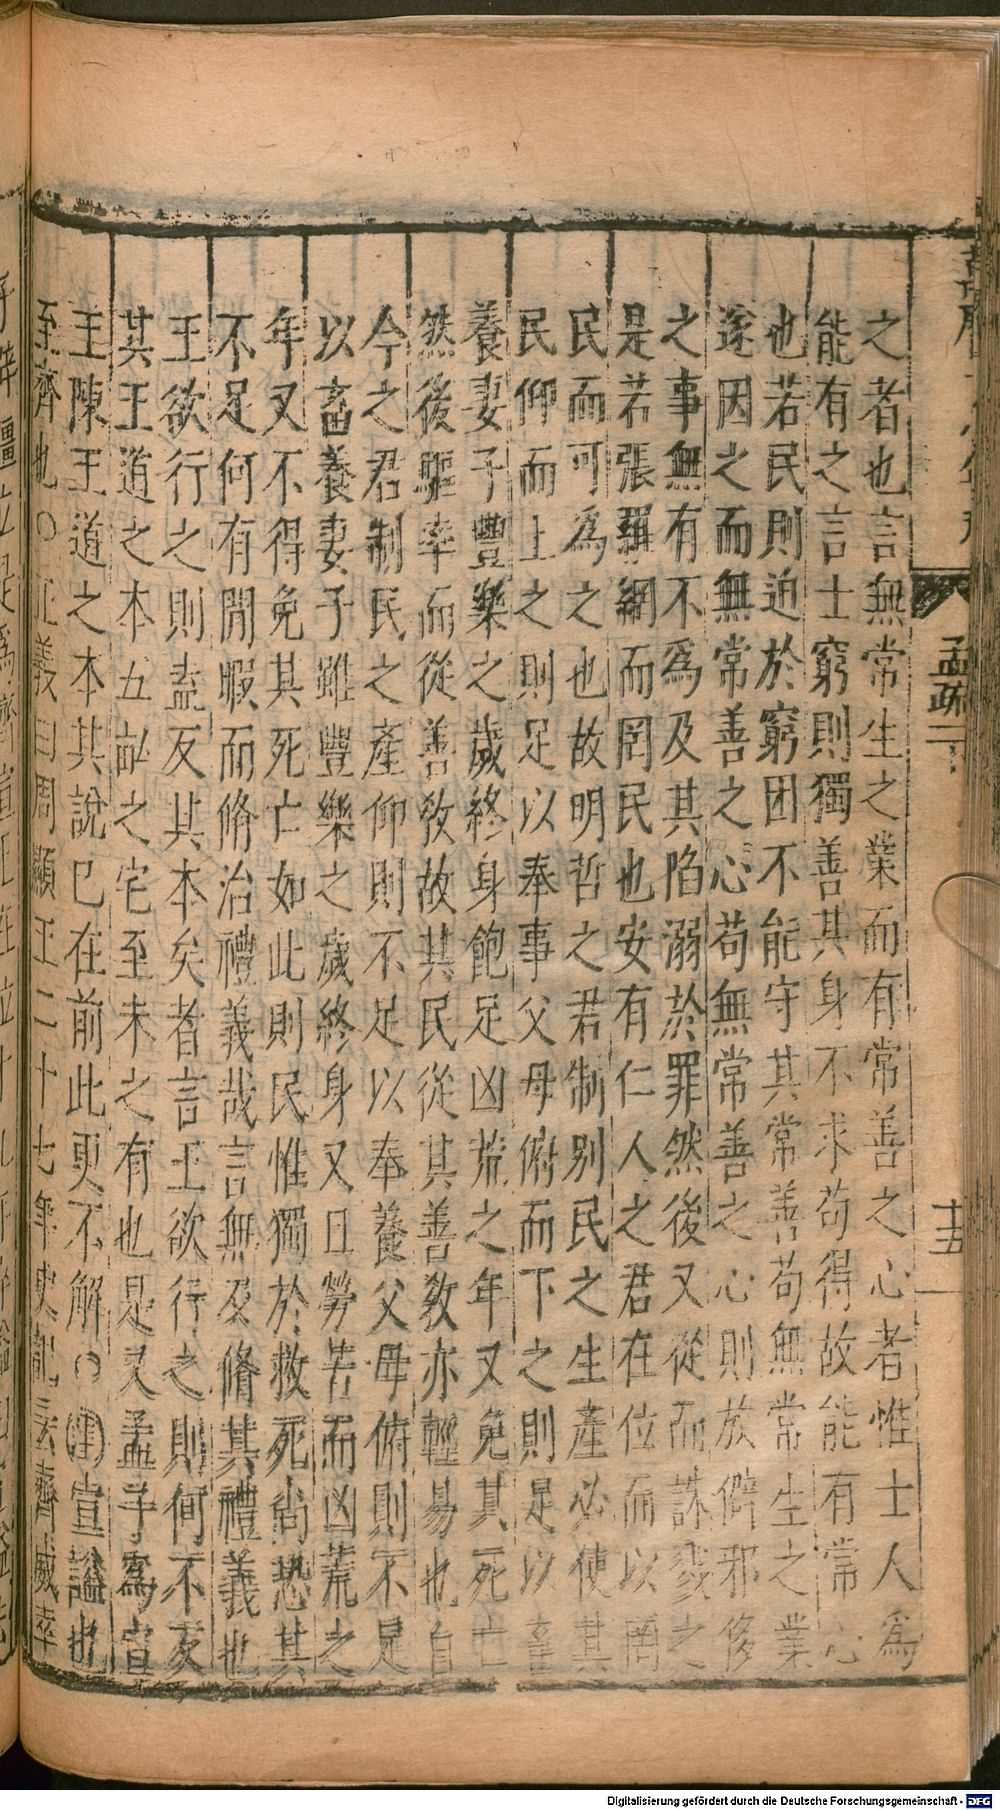 之者也言無常生之業而有常善之心者惟士人爲
能有之言士窮則獨善其身不求苟得故能有常心
也若民則迫於窮困不能守其常善苟無常生之業
遂因之而無常善之心苟無常善之心則放僻邪侈
之事無有不爲及其陷溺於罪然後又從而誅戮之
是若張羅網而罔民也安有仁人之君在位而以罔
民而可爲之也故明哲之君制別民之生產必使其
民仰而上之則足以奉事父母俯而下之則足以畜
養妻子豐樂之歲終身飽足凶荒之年又免其死亡
然後驅率而從善教故其民從其善教亦輕易也自
今之君制民之產仰則不足以奉養父母俯則不足
以畜養妻子雖豐樂之歲終身又日勞苦而凶荒之
年又不得免其死亡如此則民惟獨於救死尚恐其
不足何有閒暇而脩治禮義哉言無及脩其禮義也
王欲行之則盍反其本矣者言王欲行之則何不反
其王道之本五畝之宅至未之有也是又孟子爲宣
王陳王道之本其說已在前此更不解○注宣謚也
至齊也○正義曰周顯王二十七年史記云齊威卒
孟疏一下
十五
Digitalisierung gefördert durch die Deutsche Forschungsgemeinschaft - DFG